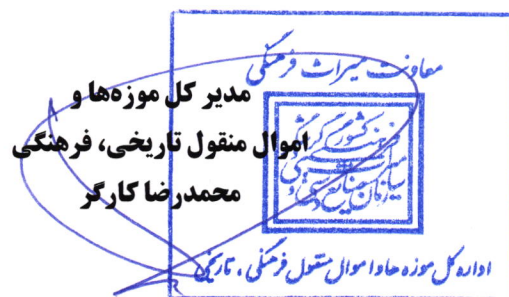 معاونت میراث فرهنگی
مدیر کل موزه‌ها و
اموال منقول تاریخی، فرهنگی
محمدرضا کارگر
سازمان میراث فرهنگی
صنایع دستی و گردشگری کشور
اداره کل موزه ها و اموال منقول فرهنگی ، تاریخی